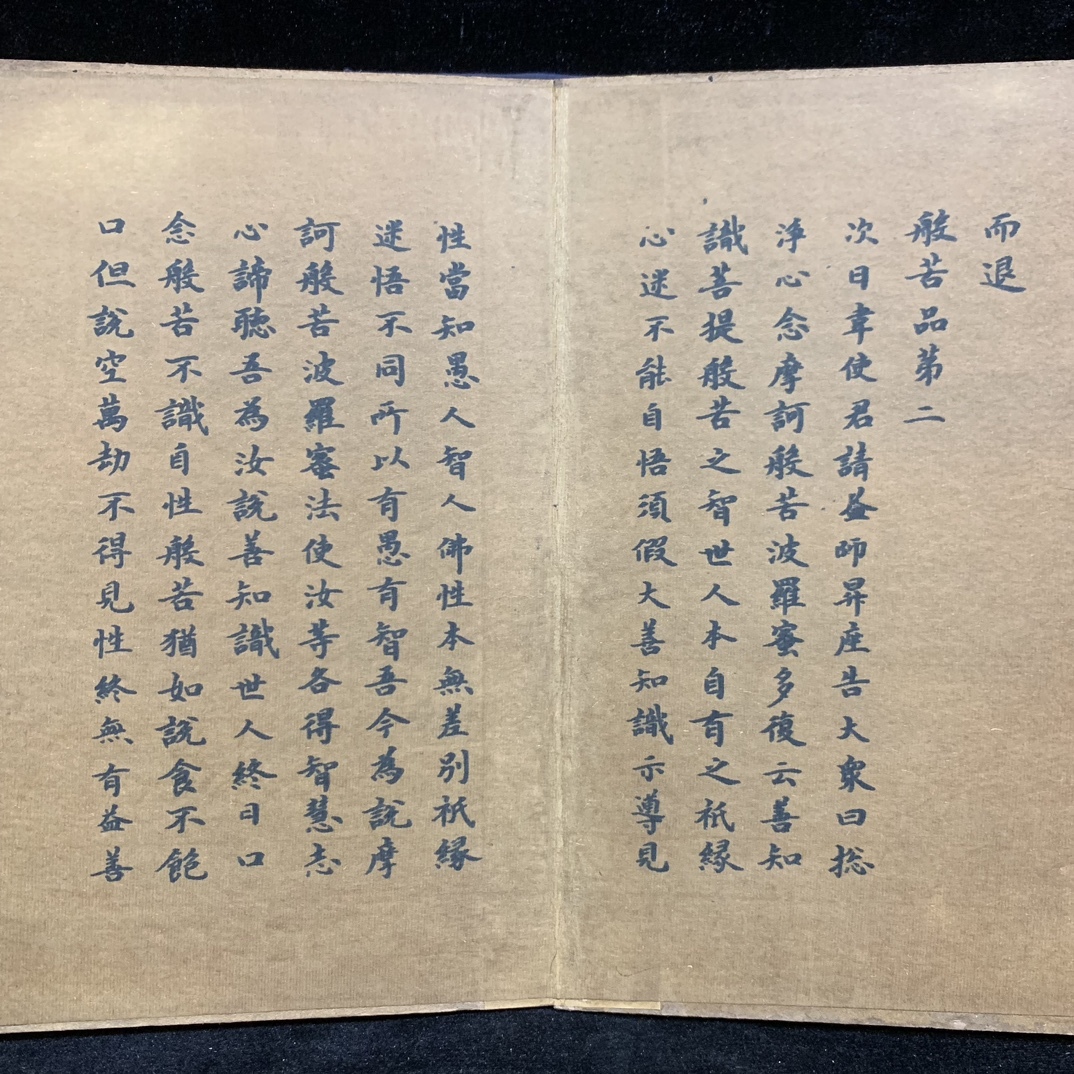 而退
般若品第二
次日韋使君請益師昇座告大衆曰捴
淨心念摩訶般若波羅蜜多復云善知
識菩提般若之智世人本自有之秖縁
心迷不能自悟須假大善知識示導見
性當知愚人智人佛性本無差別秖縁
迷悟不同所以有愚有智吾今為說摩
訶般若波羅蜜法使汝等各得智慧志
心諦聽吾為汝說善知識世人終日口
念般若不識自性般若猶如說食不飽
口但說空萬劫不得見性終無有益善